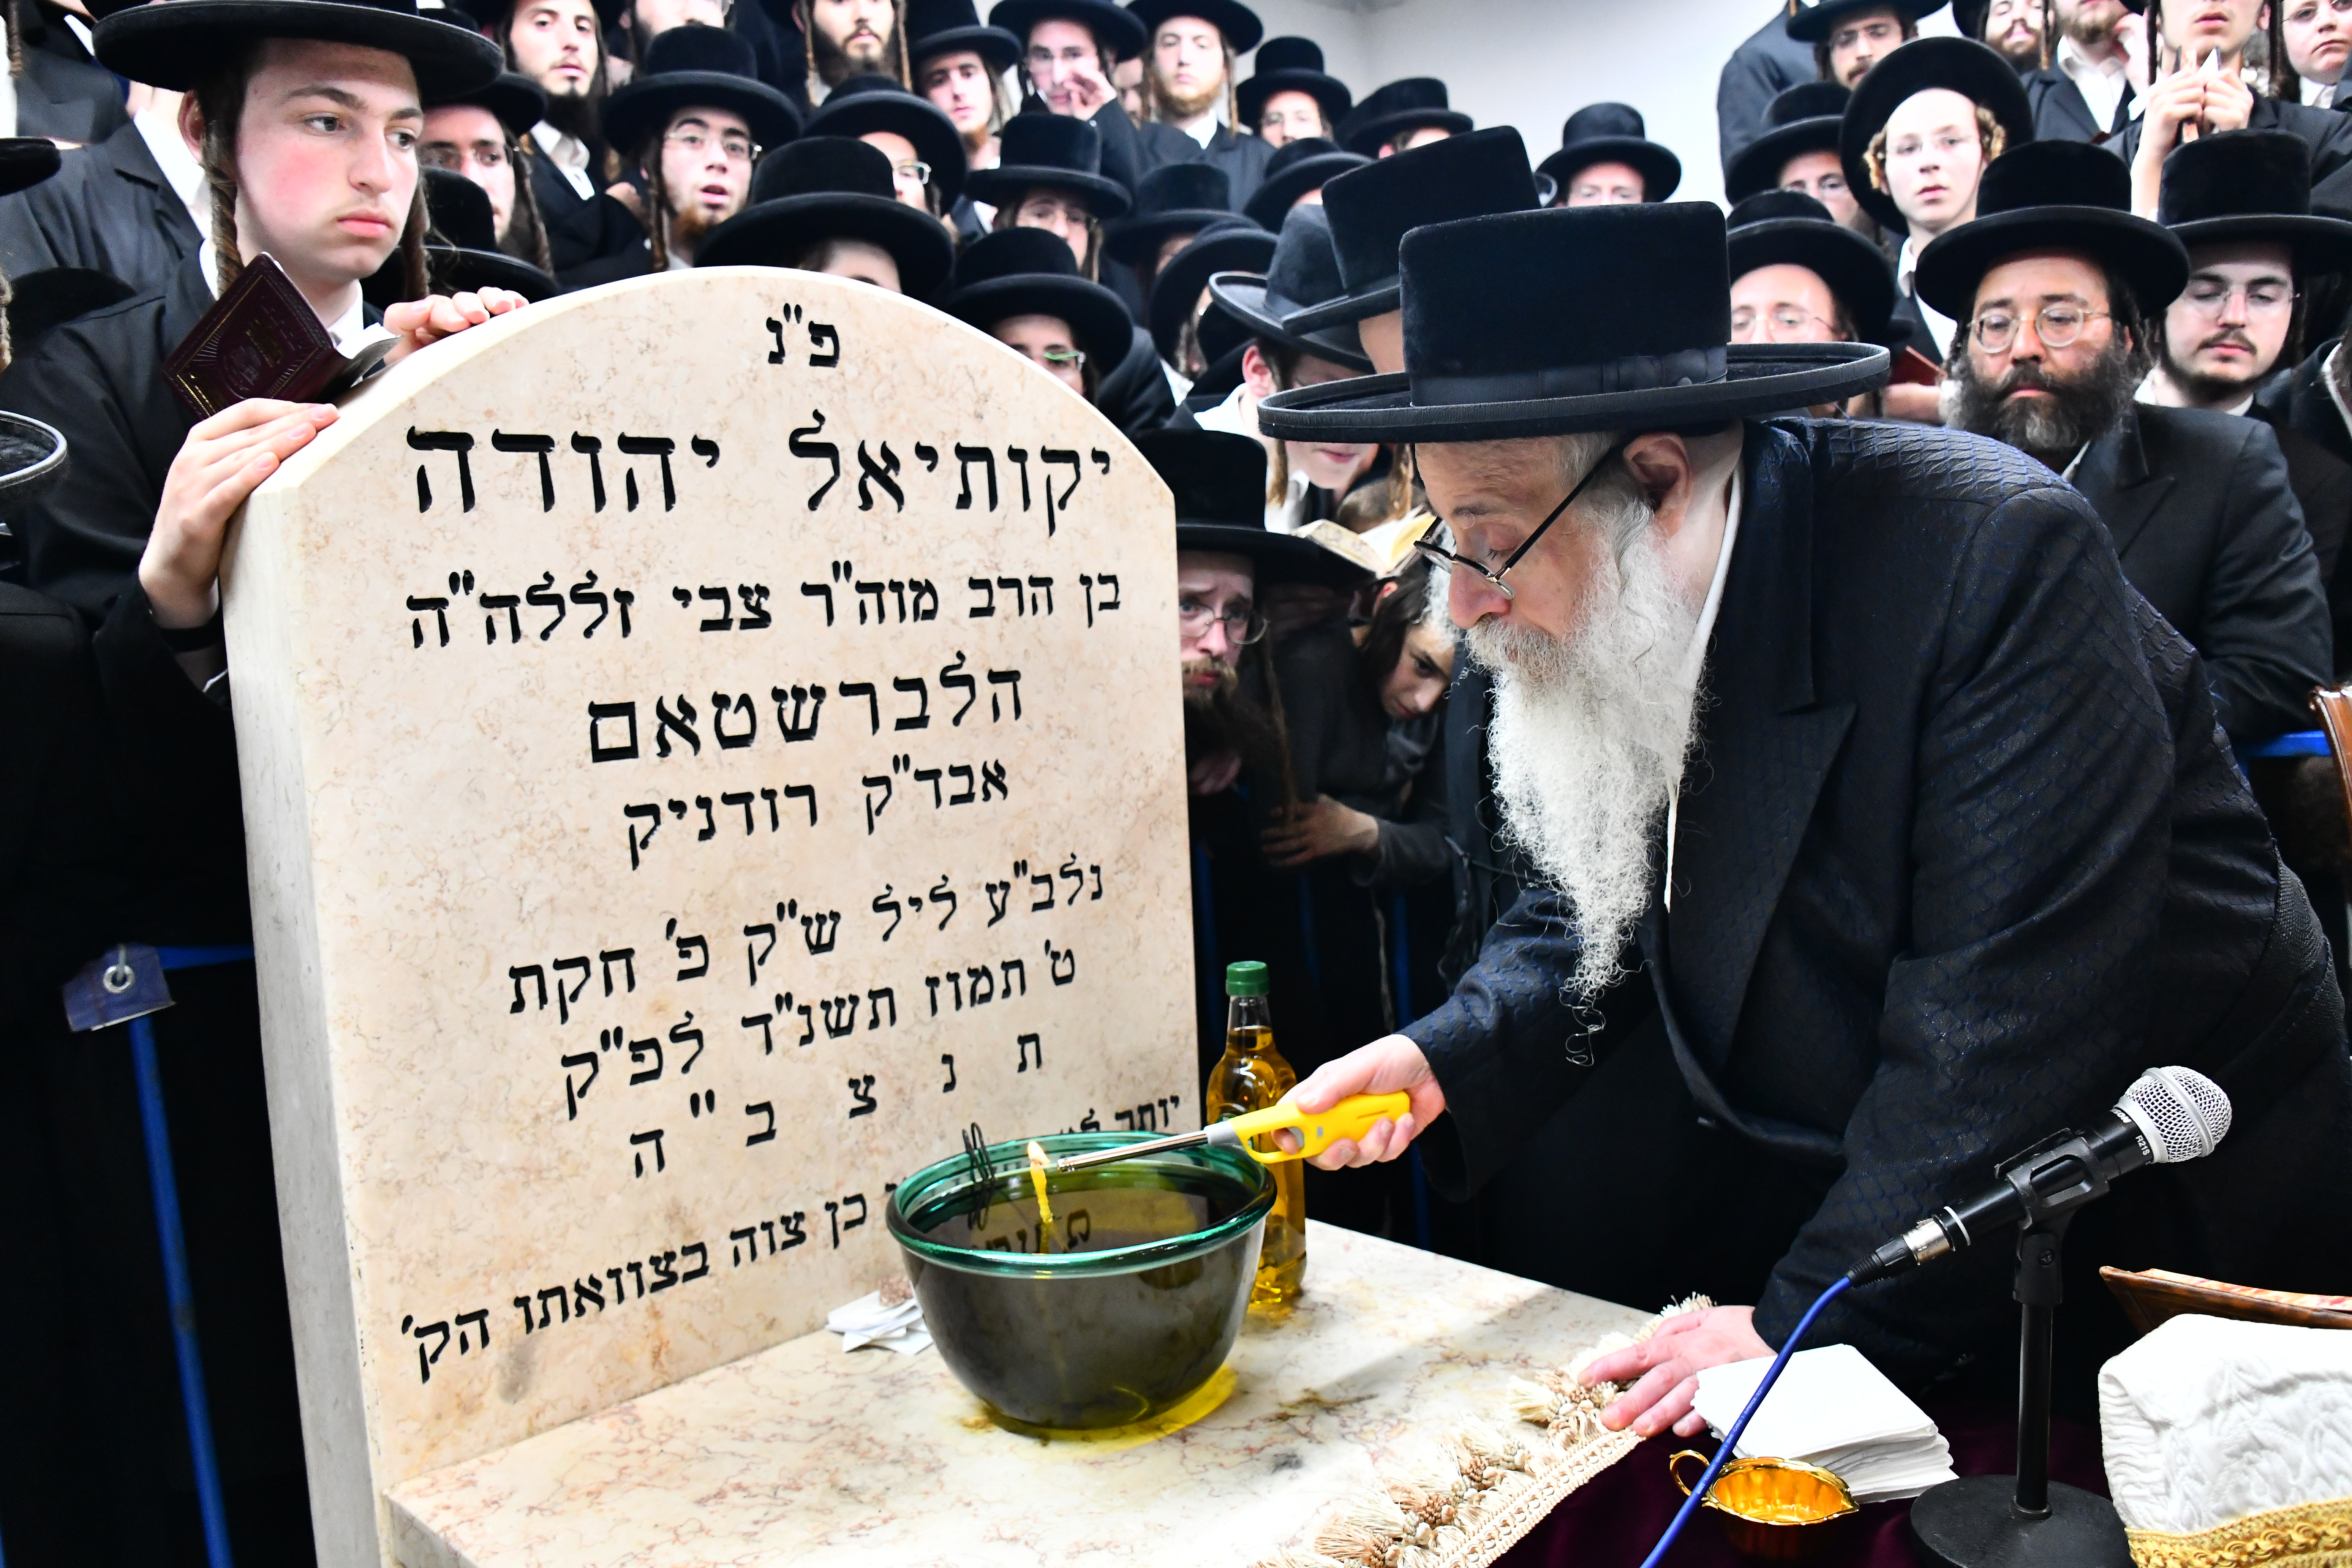 פ"נ
יקותיאל יהודה
בן הרב מוה"ר צבי זללה"ה
הלברשטאם
אבד"ק רודניק
נלב"ע ליל ש"ק פ' חקת
ט' תמוז תשנ"ד לפ"ק
ת נ צ ב "ה
יותר
כן צוה בצוואתו הק'
R21S